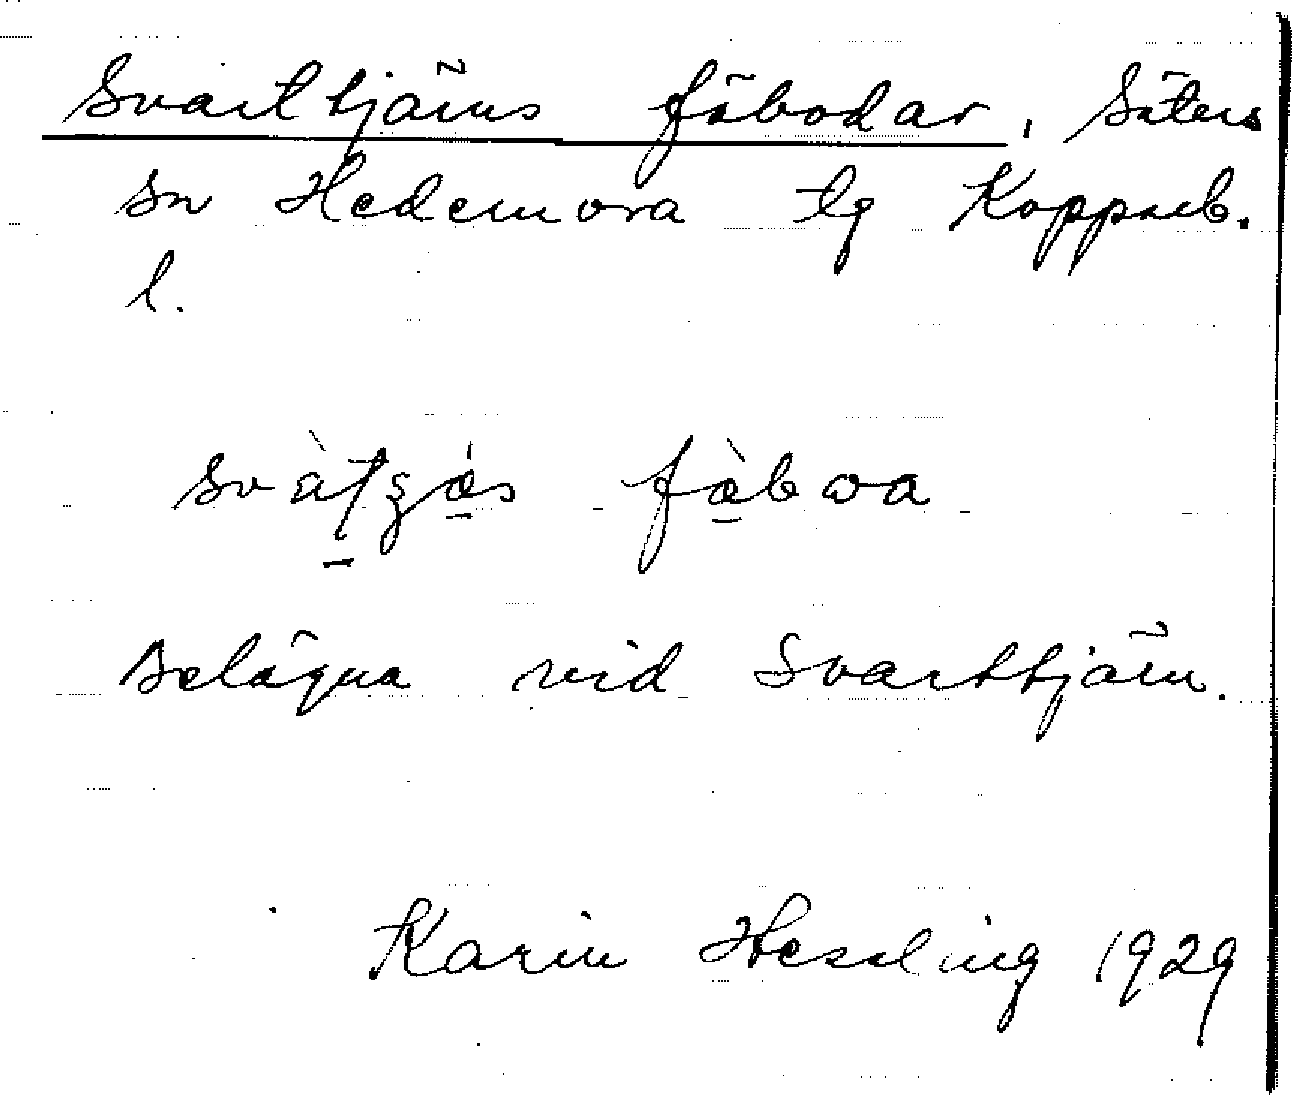 Svarttjärns fäbodar, Säters
sn Hedemora tg Kopparb.
l.
fàbωa
Belägna vid Svarttjärn.
Karin Hessling 1929